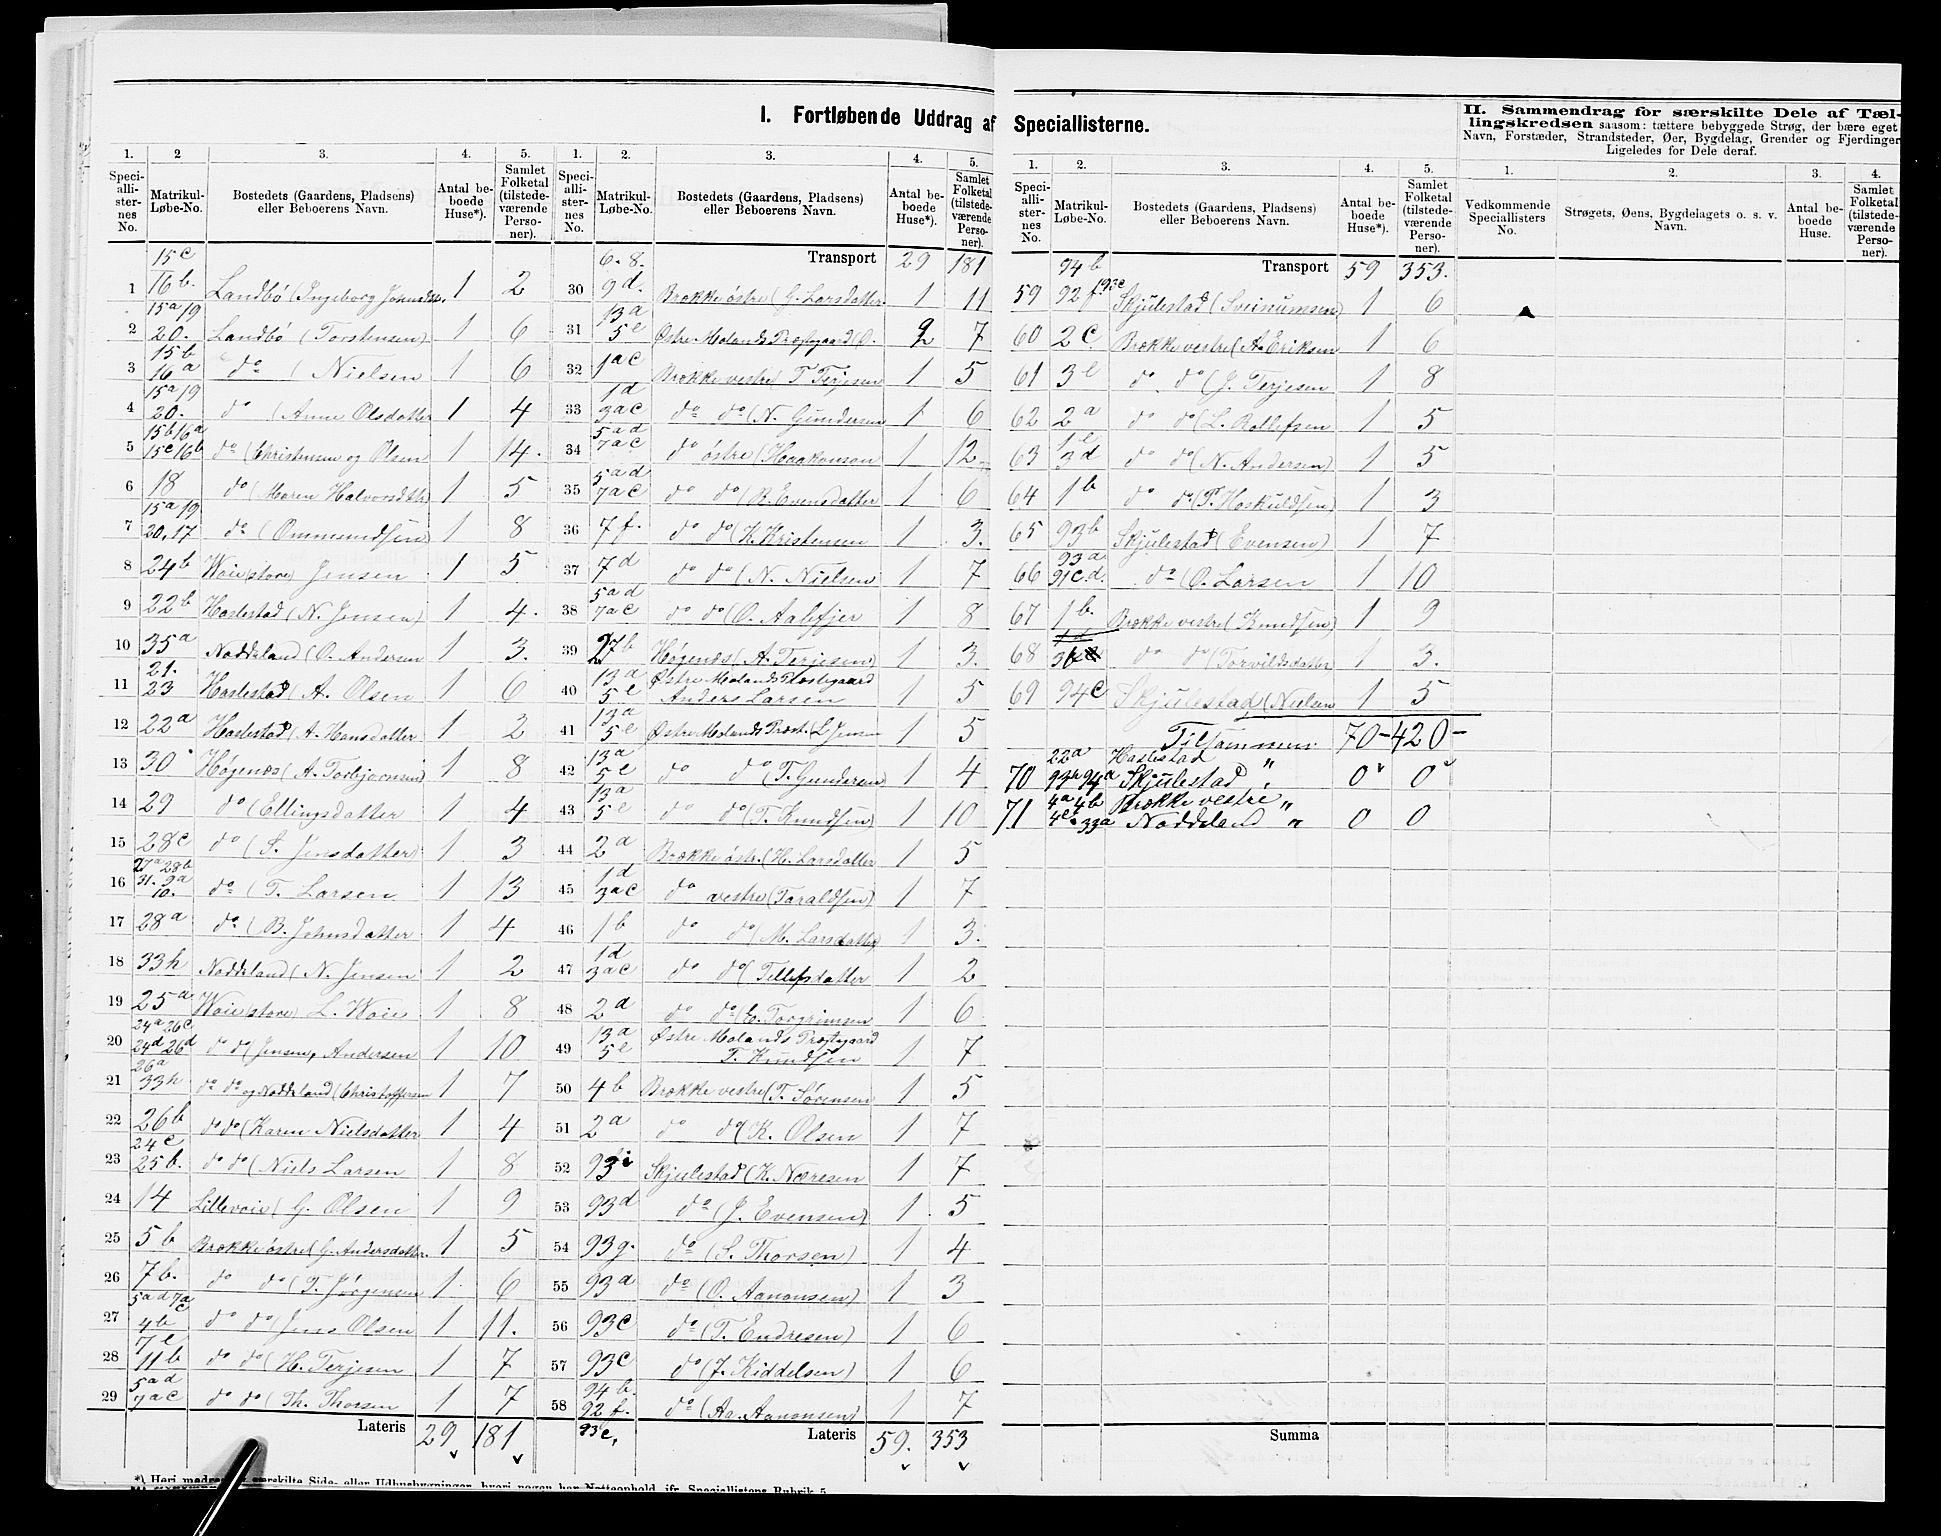 I. Fortløbende Uddrag af Speciallisterne.
II. Sammendrag for særskilte Dele af Tæl-
lingskredsen saasom: tættere bebyggede Strøg, der bære eget
Navn, Forstæder, Strandsteder, Øer, Bygdelag, Grender og Fjerdinger
Ligeledes for Dele deraf.
1. 2 3. 4. 5.
Speciallisternes No. Matrikul-Løbe-No. Bostedets (Gaardens, Pladsens) eller Beboerens Navn. Antal beboede Huse*). Samlet Folketal (tilstedeværende Personer).
15c
1 16b. Landbø (Ingeborg 1 2
15a 19
2 20. Landbø (Torstensen) 1 6
15b
3 16a do (Nielsen 1 6
15a 19
4 20. do (Anne Olsdatter 1 4
15b 16a
5 15c 16b do (Christensen og Olsen 1 14.
6 18 do (Maren Halvorsdtr) 1 5
15a 19
7 20.17 do (Ommundsen) 1 8
8 24b Woie (store) Jensen 1 5
9 22b Haslestad (N. Jensen) 1 4.
10 35a Noddeland (O. Andersen 1 3.
21.
11 23 Haslestad (A. Olsen 1 6
12 22a Haslestad (A. Hansdatter 1 2
13 30 Høgenæs (A. Torbjørnsen) 1 8
14 29 do (Ellingsdatter 1 4
15 28c do (S. Jensdatter) 1 3
27a 28b
16 31. 9a 10. do (T. Larsen 1 13
17 28a do (B. Johnsdatter 1 4
18 33h Noddeland (N. Jensen 1 2
19 25a Woie (store) L. Woie 1 8
24a 26c
20 24d 26d do do (Jensen, Andersen 1 10
26a
21 33h do do og Noddeland (Christoffersen 1 7
22 26b do do (Karen Nielsdatter 1 4
24c
23 25b. do do (Niels Larsen 1 8
24 14 Lillevoie (G. Olsen 1 9
25 5b Brække østre (G. Andersdatter. 1 5
26 7b. do do (T. Jørgensen 1 6
5a d 7a c
27 4b do do (Jens Olsen 1 11.
7e
28 11b do do (H. Terjesen 1 7
5a d
29 7a c do do (Th. Thorsen 1 7
Lateris 29 181
*) Heri medregnes særskilte Side- eller Udhusbygninger, hvori nogen har Natteophold, jfr. Speciallistens Rubrik 5.
1. 2. 3. 4. 5.
Speciallisternes No. Matrikul-Løbe-No. Bostedets (Gaardens, Pladsens) eller Beboerens Navn. Antal beboede Huse*). Samlet Folketal (tilstedeværende Personer).
6. 8. Transport 29 181
30 9d. Brække østre (G. Larsdatter. 1 11
13a
31 5e Østre Molands Præstegaard (O. 2 7
32 1a c Brække vestre (T Terjesen 1 5
1d
33 3a c do do (N. Gundersen 1 6
5a d
34 7a c do østre (Haakonson 1 12
5a d
35 7a c do do (R. Evensdatter 1 6
36 7f. do do (K. Kristensen 1 3.
37 7d do do (N. Nielsen 1 7
5a d
38 7a c do do (O. Aalefjer 1 8
39 27b Høgenæs (A. Terjesen) 1 3.
13a Østre Molands Præstegaard
40 5e Anders Larsen 1 5
13a
41 5e Østre Molands Præst. (L Jensen 1 5
13a
42 5e do do (T. Gundersen 1 4
13a
43 5e do do (T. Knudsen) 1 10
44 2a Brække østr. (H. Larsdatter 1 5
1d
45 3a c do vestre (Taraldsen) 1 7
46 1b do do (M. Larsdatter) 1 3.
1d
47 3a c do do (Tellefsdatter 1 2
48 2d do do (E. Torgrimsen 1 6
13a Østre Molands Præstegaard
49 5e T. Knudsen 1 7
50 4b Brække vestre (T. Sørensen 1 5
51 2a do do (K. Olsen 1 7
52 93i Skjulestad (K. Næresen 1 7
53 93d do (J. Evensen) 1 5
54 93g. do (S. Thorsen) 1 4
55 93a do (O. Aanonsen) 1 3
56 93c do (T. Endresen) 1 6
57 93c do (J. Kiddelsen) 1 6
94b.
58 92f. do (Aa. Aanonsen) 1 7
93e, Lateris 59. 353
1. 2. 3. 4. 5.
Speciallisternes No. Matrikul-Løbe-No. Bostedets (Gaardens, Pladsens) eller Beboerens Navn. Antal beboede Huse*). Samlet Folketal (tilstedeværende Personer).
94b Transport 59 353.
59 92f. 93e Skjulestad (Sveinumsen) 1 6
60 2c Brække vestre (A. Eriksen 1 6
61 3e do do (J. Terjesen 1 8
62 2a do do (L. Rollefsen 1 5
1e
63 3d do do (N. Andersen) 1 5
64 1b do do (T. Hoskuldsen 1 3
65 93b Skjulestad (Evensen) 1 7
93a
66 91c.d. do (O. Larsen 1 10
67 1b. Brække vestre (Knudsen) 1 9
68 3b do do (Torvildsdatter 1 3.
69 94c Skjulestad (Nielsen 1 5
Tilsammen: 70 - 420 -
22a Haslestad "
70 93h 94a Skjulestad 0 0
4a 4b Brække vestre "
71 4c. 33a Noddeland " 0 0
Summa
1. 2. 3. 4.
Vedkommende Speciallisters No. Strøgets, Øens, Bygdelagets o. s. v. Navn. Antal beboede Huse. Samlet Folketal (tilstedeværende Personer).